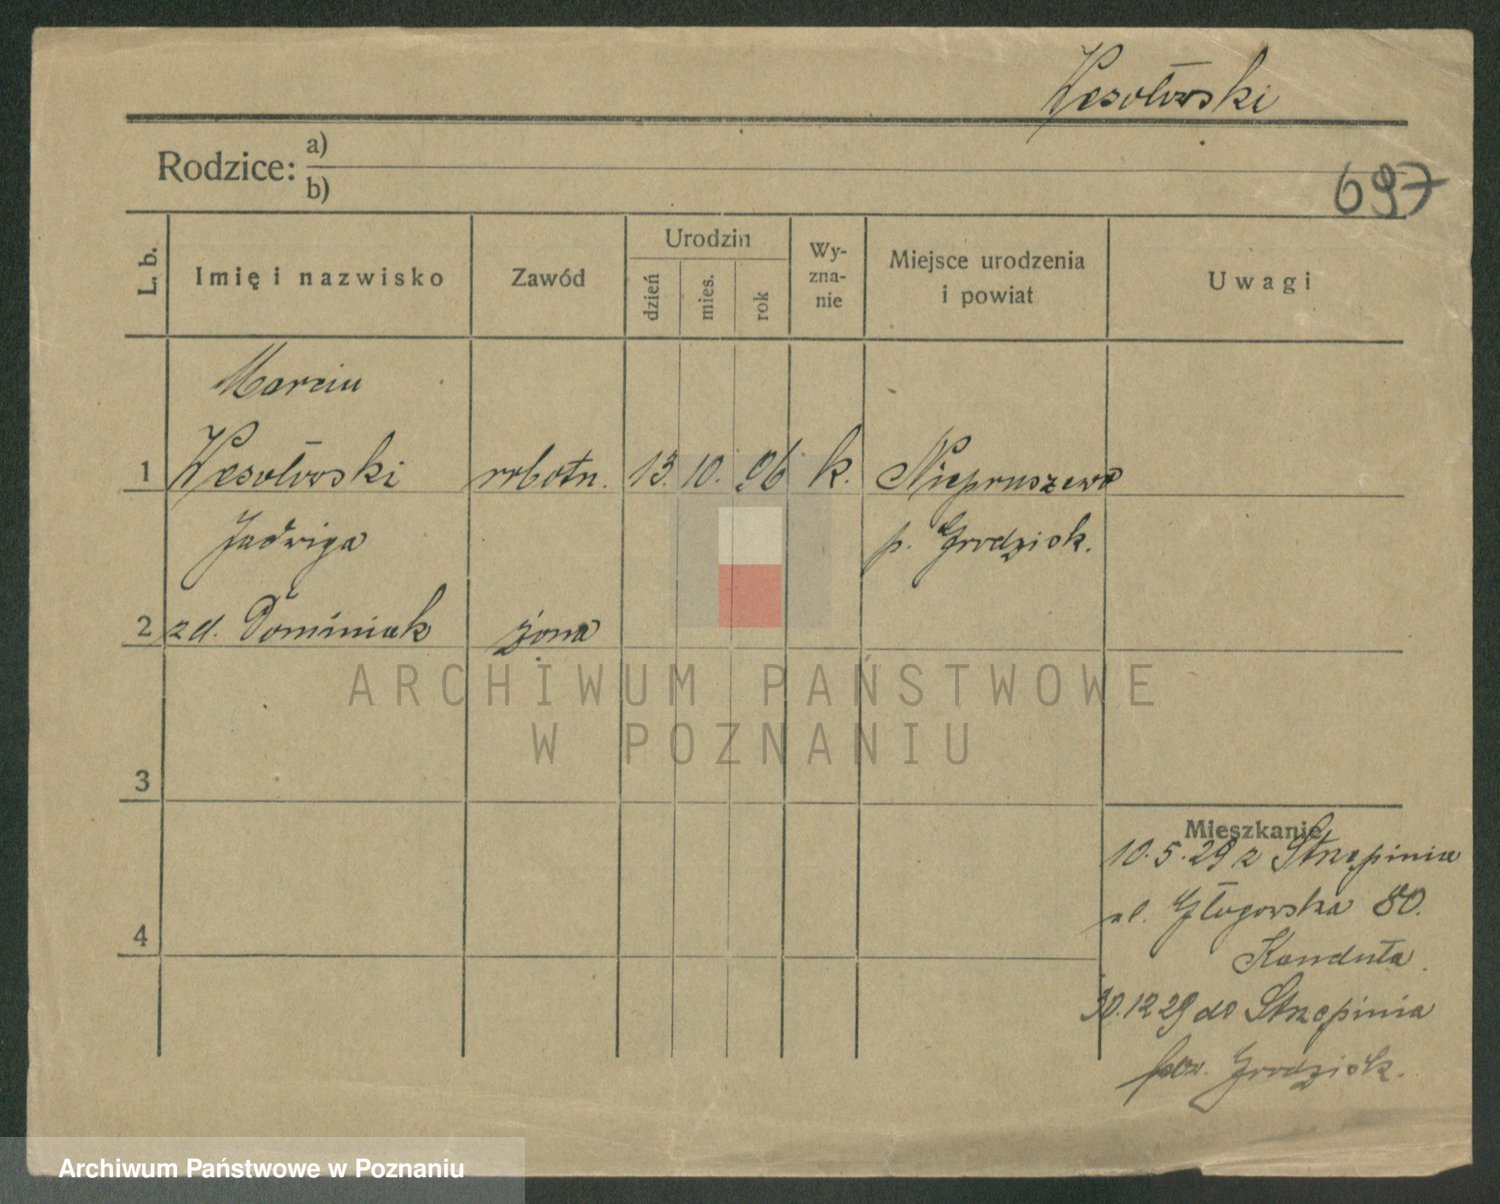 Wesołowski
Rodzice: a)
b)
697
L. b.
Imię i nazwisko
Zawód
Urodzin
dzień
mies.
rok
Wy-
zna-
nie
Miejsce urodzenia
i powiat
Uwagi
Marcin
1 Wesołowski robotn. 13. 10. 96 k. Niepruszewo
Jadwiga p. Grodzisk.
2 zd. Dominiak żona
ARCHIWUM PAŃSTWOWE
W POZNANIU
3
Mieszkanie
10.5.29 z Strzępinia
ul. Głogowska 80.
4
Kanduła
30.12 29 do Strzępinia
pow. Grodzisk.
Archiwum Państwowe w Poznaniu